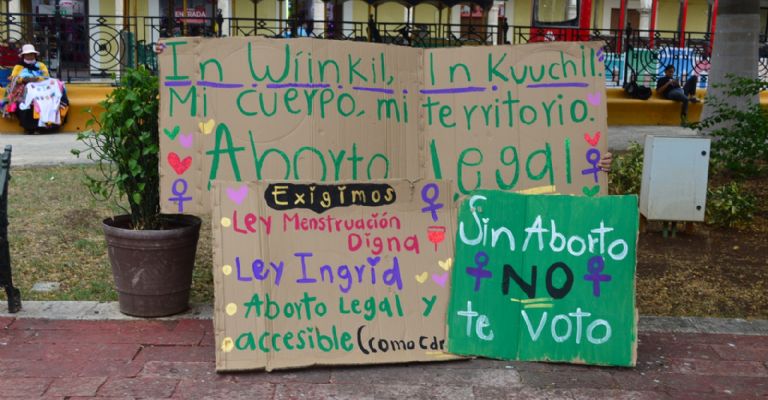 ENTRADA
In Wíinkil, In Kuuchil.
Mi cuerpo, mi territorio.
Aborto Legal
Exigimos
Ley Menstruación
Digna
Ley Ingrid
Aborto Legal y
accesible (como
Sin Aborto
NO
te Voto